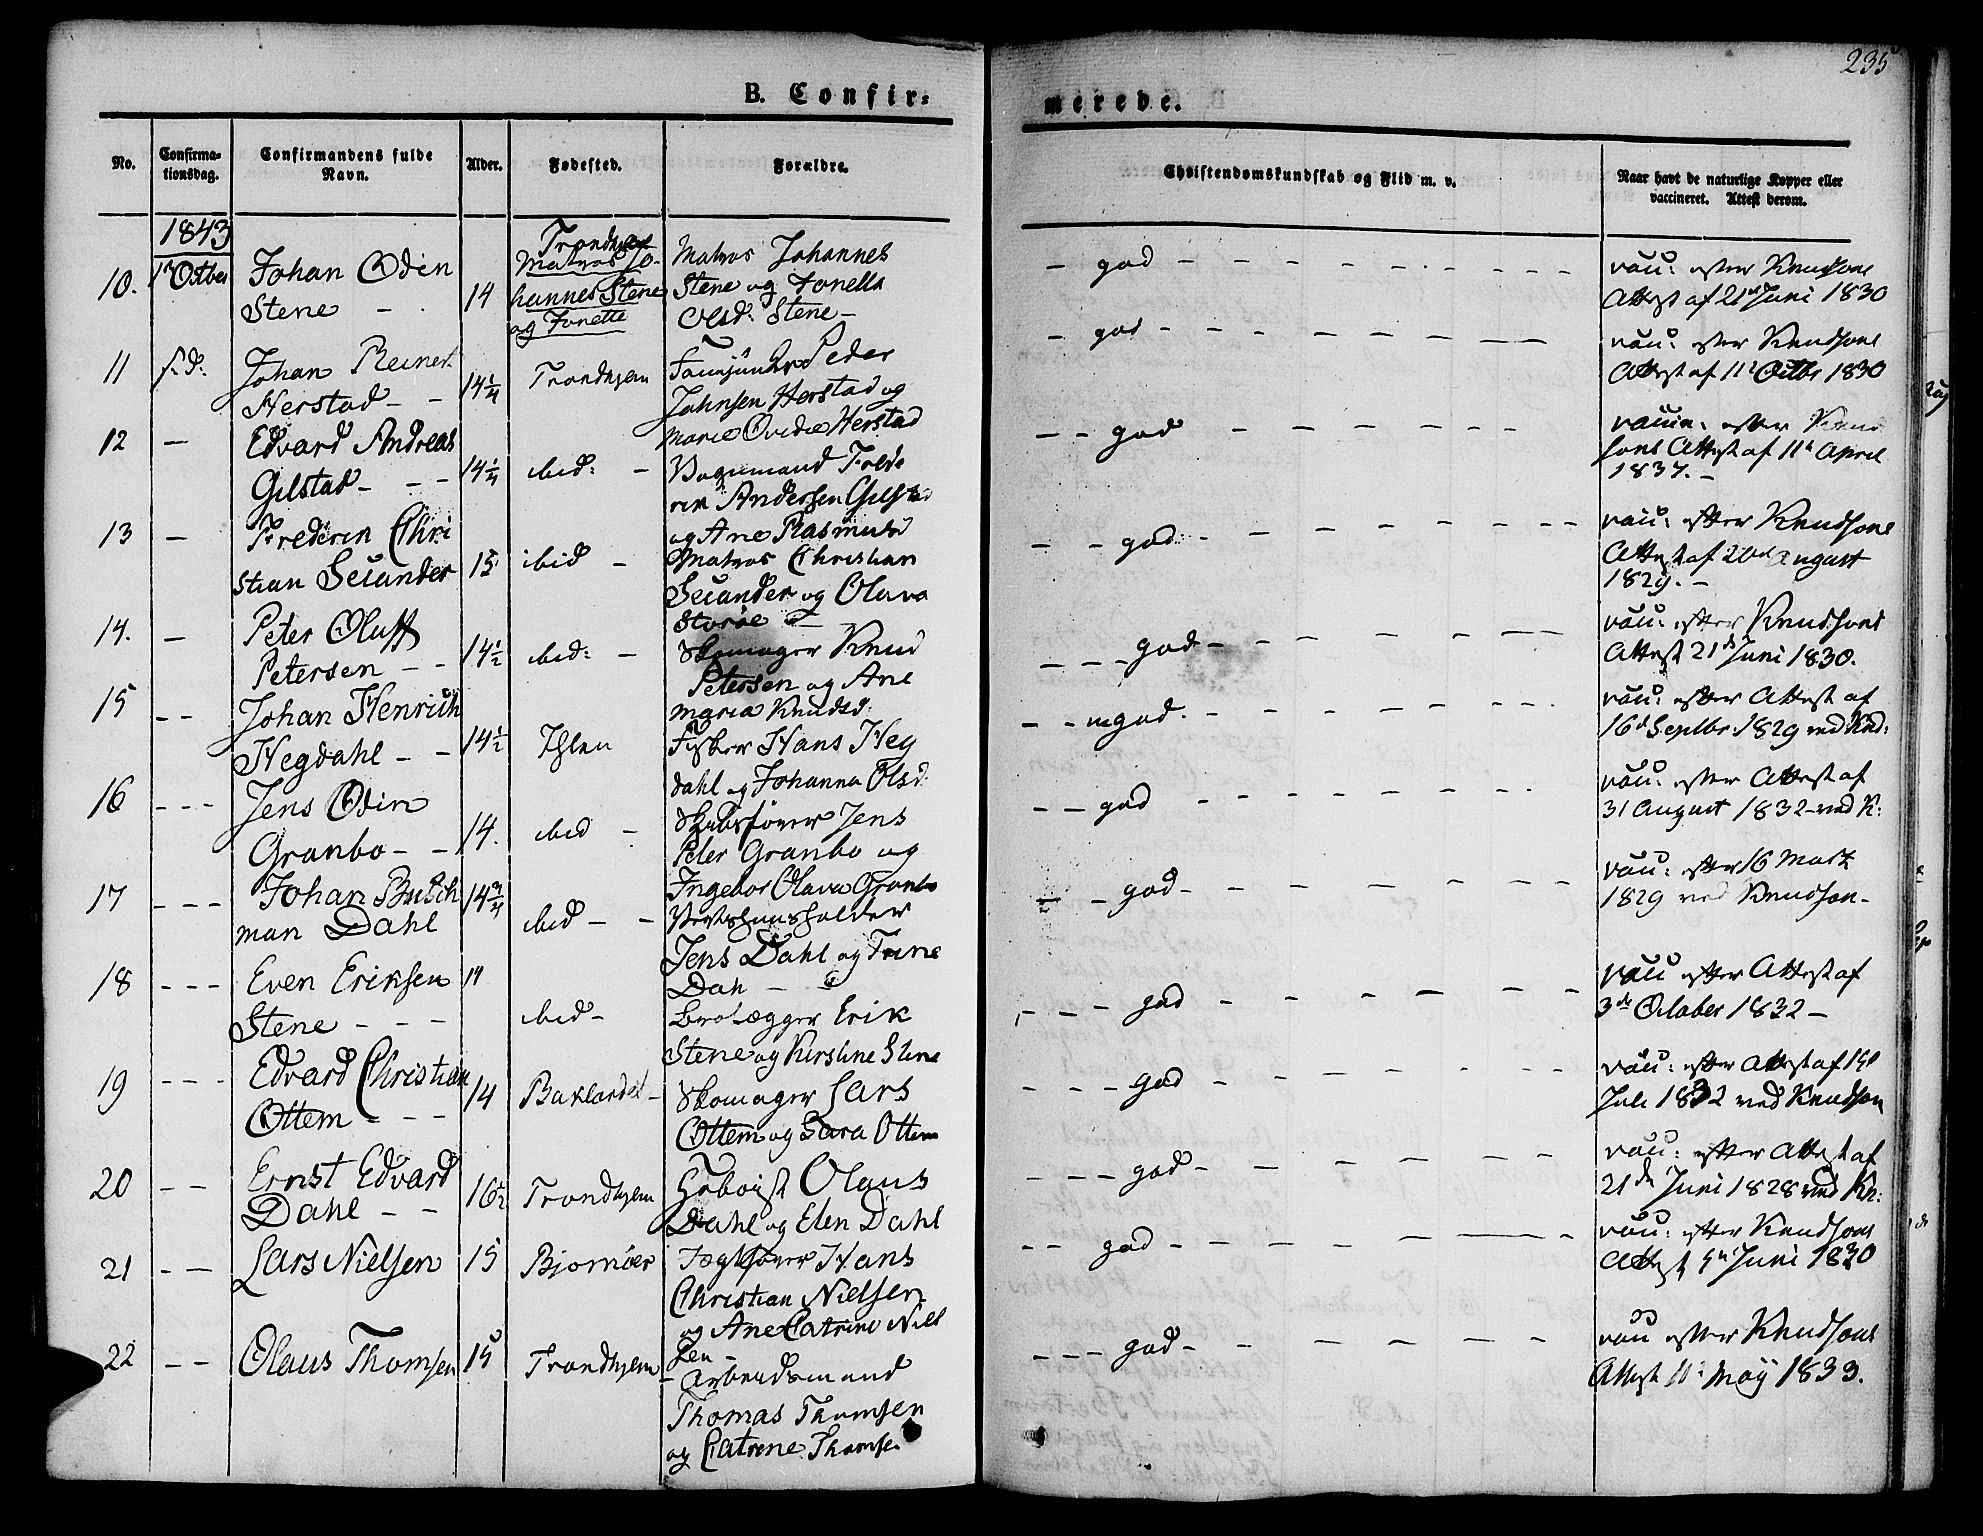 235
B. Confir-
merede.
No.
Confirma-
tionsdag.
Confirmandens fulde
Navn.
Alder.
Fødested.
Forældre.
Christendomskundskab og Flid m. v.
Naar havt de naturlige Kopper eller
vaccineret. Attest derom.
1843
10. 1 Octber Johan Odin
Stene
14
Matros Jo-
hannes Stene
og Jonette
Matros Johannes
Stene og Jonella
Olsd: Stene
god
vac: efter Knudsons
Attest af 21d Juni 1830
11 s.d. Johan Reinert
Herstad
14¼
Trondhjem
Peder
Johnsen Herstad og
Marie Herstad
god
vac: efter Knudsons
Attest af 11 Octbr 1830
12 Edvard Andreas
Gilstad
14¼
ibid:
Vognmand Frede
rik Andersen Gilstad
og Ane Rasmusd
god
efter Knud
sons Attest af 11 April
1837.
13 Frederik Chri
stian Secander
15
ibid
Matros Christian
Secander og Olava
Storøe
god
vac: efter Knudsons
Attest af 20d August
1829.
14. Peter Oluff
Petersen
14½
ibid:
Skomager Knud
Petersen og Ane
Maria Knudsd:
god
vac: efter Knudsons
Attest 21d Juni 1830.
15 Johan Henrich
Hegdahl
14½
Ihlen
Fisker Hans Heg
dahl og Johanna Olsd:
mgod.
vac: efter Attest af
16d Septbr. 1829 ved Knd:
16 Jens Odin
Granbo
14.
ibid
Skibsfører Jens
Peter Granbo og
Ingebor Olava Granbo
god
vac: efter Attest af
31 August 1832 ved K:
17 Johan Busch
man Dahl
14¾
ibid
Vertshuusholder
Jens Dahl og Trine
Dah
god
vac: efter 16 Marts
1829 ved Knudson
18 Even Eriksen
Stene
14
ibid
Brolægger Erik
Stene og Kirstine Stene
god
vac efter Attest af
3de October 1832
19 Edvard Christian
Ottem
14
Baklandet
Skomager Lars
Ottem og Sara Ottem
god
vac: efter Attest af
Juli 1832 ved Knudson
20 Ernst Edvard
Dahl
16½
Trondhjem
Olaus
Dahl og Elen Dahl
god
vac: efter Attest af
21de Juni 1828 ved Kn:
21 Lars Nielsen
15
Bjornøer
Hans
Christian Nielsen
og Ane Catrine Niel
sen
god
vac: efter Knudsons
Attest Juni 1830
22 Olaus Thomsen
15
Trondhjem
Arbeidsmand
Thomas Thomsen
og Catrine Thomse
god
vac efter Knudsons
Attest 11 May 1833.